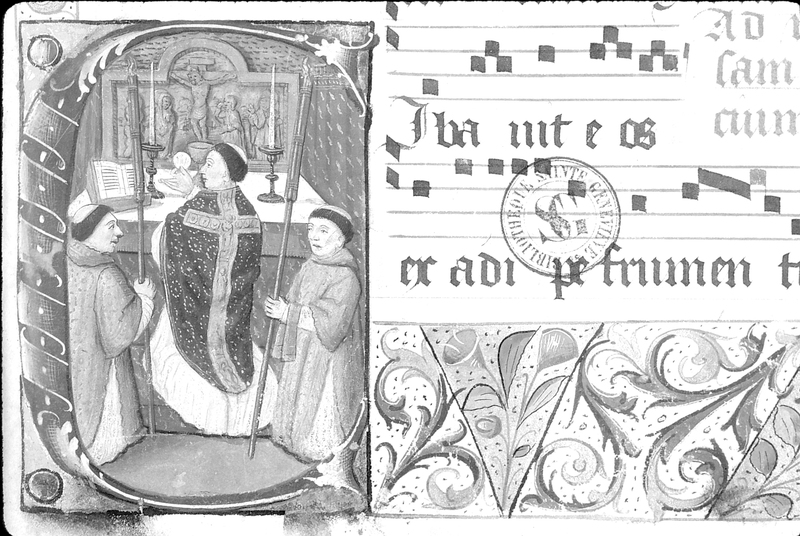 Iba uit e os
ex adi pe frumen t
Ad
sam
BIBLIOTHEQUE SAINTE GENEVIEVE
SG